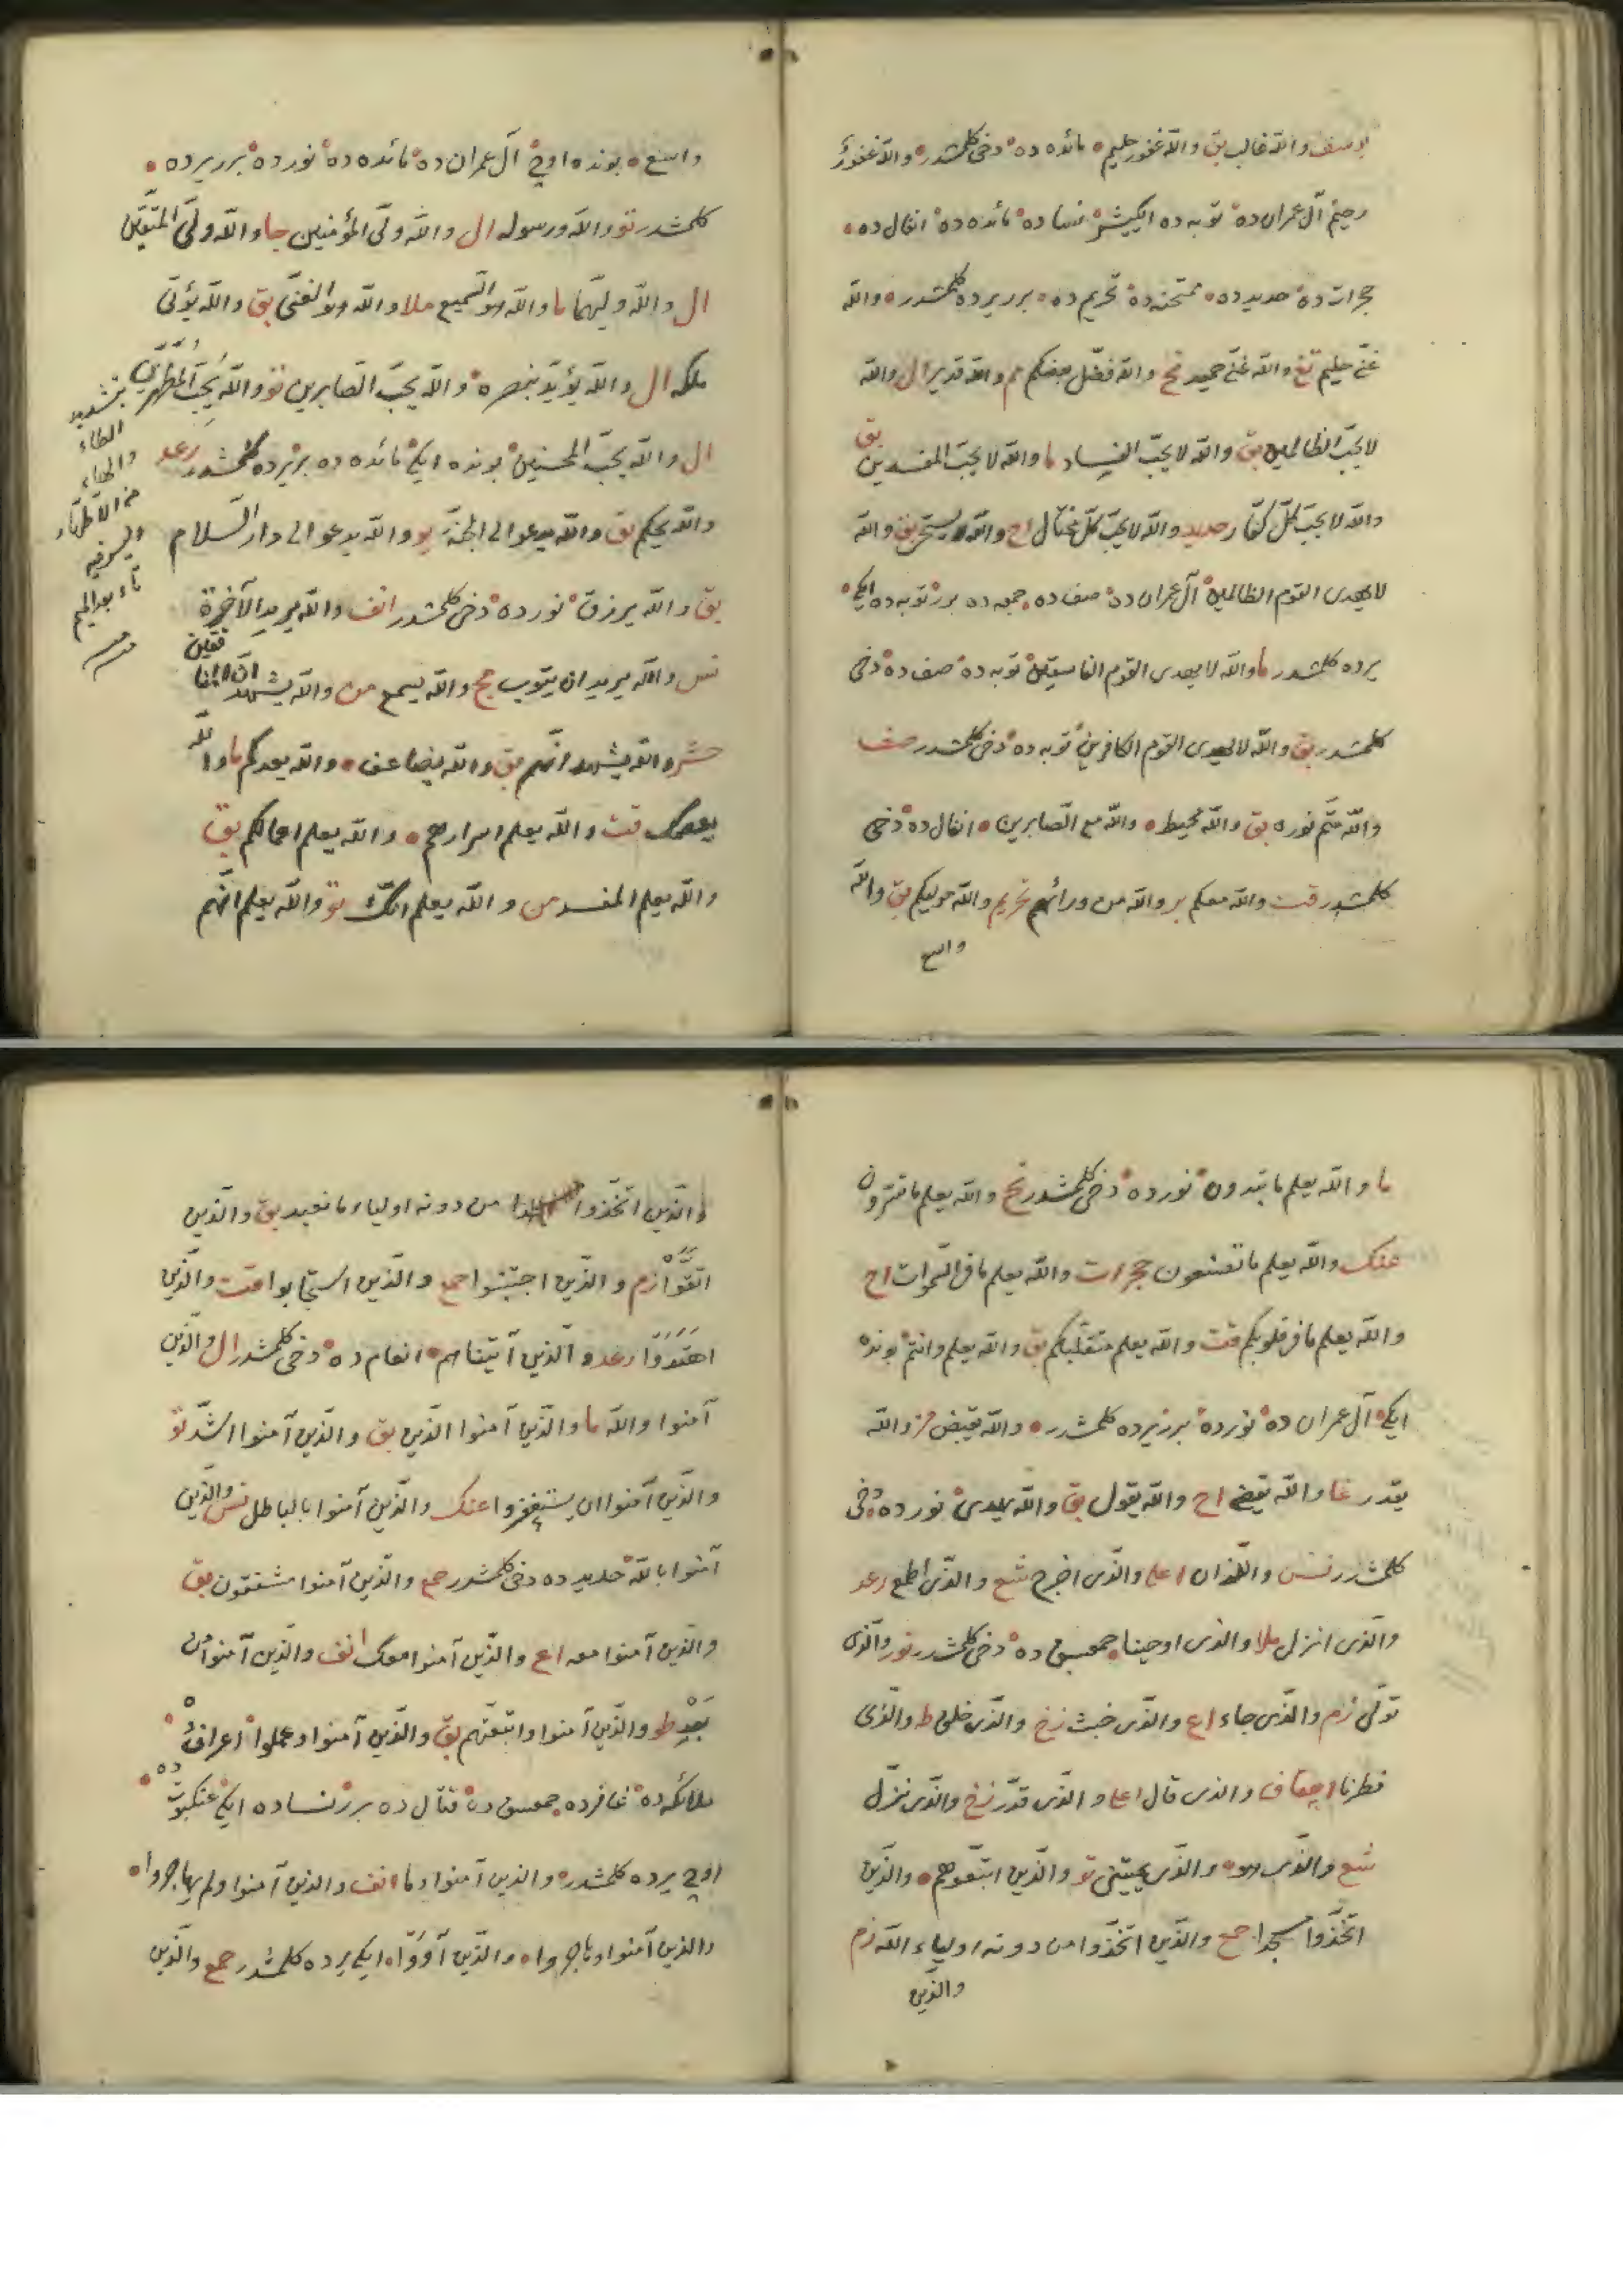 یوسف والله غالب بق والله غفور حلیم مائده ده دخی کلمشدر والله غفور
رحیم آل عمران ده توبه ده ایکیشر نساده مائده ده انفال ده
حجرات ده حدید ده ممتحنه ده تحریم ده برر یرده کلمشدر والله
غنی حلیم تغ والله غنی حمید نح والله فضل بعضکم والله قدیر ال والله
لا یحب الظالمین بق والله لا یحب الفساد ما والله لا یحب المفسدین بق
والله لا یحب کل کفار حدید والله لا یحب کل مختال اح والله لا یستحی بق والله
لا یهدی القوم الظالمین آل عمران ده صف ده جمعه ده برر توبه ده ایکی
یرده کلمشدر ما والله لا یهدی القوم الفاسقین توبه ده صف ده دخی
کلمشدر بق والله لا یهدی القوم الکافرین توبه ده دخی کلمشدر صف
والله متم نوره بق والله محیط والله مع الصابرین انفال ده دخی
کلمشدر قت والله معکم بر والله من ورائهم تحریم والله مولیکم بق والله
واسع
واسع بونده اوچ آل عمران ده مائده ده نور ده برر یرده
کلمشدر تو والله ورسوله ال والله ولی المؤمنین جا والله ولی المتقین
ال والله ولیهما ما والله هو السمیع ملا والله هو الغنی بق والله یؤتی
ملکه ال والله یؤید بنصره والله یحب الصابرین تو والله یحب المطهرین
بتشدید
الطاء
والهاء
ال والله یحب المحسنین بونده ایکی مائده ده بر یرده کلمشدر رعد
والله یحکم بق والله یدعو الی الجنة یو والله یدعو الی دار السلام
بق والله یرزق نور ده دخی کلمشدر انف والله یرید الآخرة
نس والله یرید ان یتوب حج والله یسمع من والله یشهد ان المنافقین
حشر والله یشهد انهم بق والله یضاعف والله یعدکم ما والله
یعصمک قت والله یعلم اسرارهم والله یعلم اعمالکم بق
والله یعلم المفسد من والله یعلم انک تو والله یعلم انهم
ما والله یعلم ما تبدون نور ده دخی کلمشدر نح والله یعلم ما تسرون
عنک والله یعلم ما تصنعون حجرات والله یعلم ما فی السموات اح
والله یعلم ما فی قلوبکم قت والله یعلم متقلبکم بق والله یعلم وانتم بونده
ایکی آل عمران ده نور ده برر یرده کلمشدر والله یقبض مز والله
یقدر غا والله یقضی اح والله یقول بق والله یهدی نور ده دخی
کلمشدر نس واللذان اعلی والذی اخرج شع والذی اطمع رعد
والذی انزل ملا والذی اوحینا حمعسق ده دخی کلمشدر نور والذی
تولی زم والذی جاء اع والذی خبث زخ والذی خلق ط والذی
فطرنا احقاف والذی قال اعلی والذی قدر زخ والذی نزل
شع والذی هو والذی یمیتنی تو والذین اتبعوهم والذین
اتخذوا مسجدا حمع والذین اتخذوا من دونه اولیاء الله زم
والذین
والذین اتخذوا من دونه اولیاء ما نعبد بق والذین
اتقوا زم والذین اجتنبوا حمع والذین استجابوا قت والذین
اهتدوا رعد والذین آتیناهم انعام ده دخی کلمشدر ال والذین
آمنوا والله ما والذین آمنوا الذین بق والذین آمنوا اشد تو
والذین آمنوا ان یستغفروا عنک والذین آمنوا بالباطل نس والذین
آمنوا بالله حدید ده دخی کلمشدر حمع والذین آمنوا مشفقون بق
والذین آمنوا معه اع والذین آمنوا معک انف والذین آمنوا من
بعد طو والذین آمنوا واتبعتهم بق والذین آمنوا وعملوا اعراف ده
ملائکه ده غافر ده حمعسق ده قتال ده برر نساده ایکی عنکبوت ده
اوچ یرده کلمشدر والذین آمنوا وما انف والذین آمنوا ولم یهاجروا
والذین آمنوا وهاجروا والذین آووا ایکی یرده کلمشدر حمع والذین